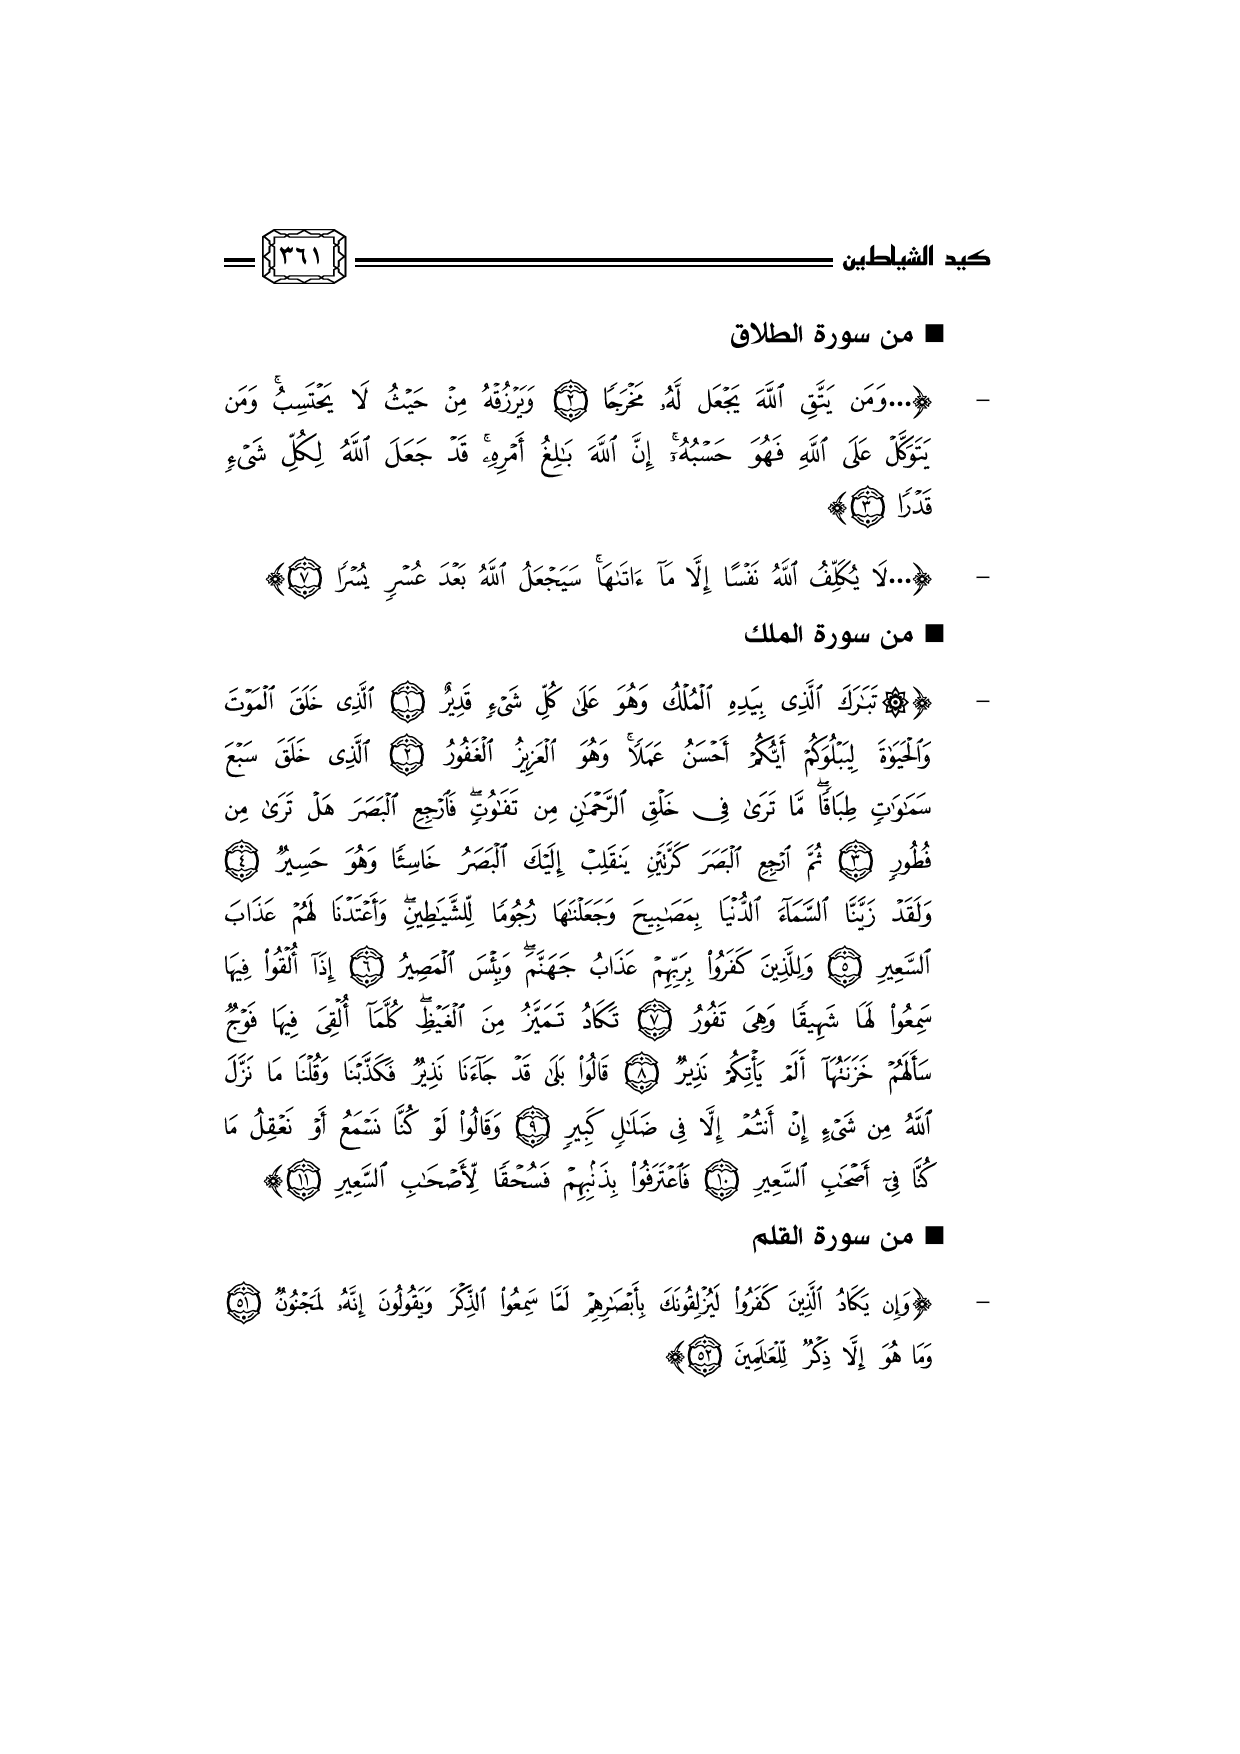 كيد الشياطين ٣٦١
■ من سورة الطلاق
– ﴿...وَمَن يَتَّقِ ٱللَّهَ يَجۡعَل لَّهُۥ مَخۡرَجٗا ٢ وَيَرۡزُقۡهُ مِنۡ حَيۡثُ لَا يَحۡتَسِبُۚ وَمَن
يَتَوَكَّلۡ عَلَى ٱللَّهِ فَهُوَ حَسۡبُهُۥٓۚ إِنَّ ٱللَّهَ بَٰلِغُ أَمۡرِهِۦۚ قَدۡ جَعَلَ ٱللَّهُ لِكُلِّ شَيۡءٖ
قَدۡرٗا ٣﴾
– ﴿...لَا يُكَلِّفُ ٱللَّهُ نَفۡسًا إِلَّا مَآ ءَاتَىٰهَاۚ سَيَجۡعَلُ ٱللَّهُ بَعۡدَ عُسۡرٖ يُسۡرٗا ٧﴾
■ من سورة الملك
– ﴿۞تَبَٰرَكَ ٱلَّذِي بِيَدِهِ ٱلۡمُلۡكُ وَهُوَ عَلَىٰ كُلِّ شَيۡءٖ قَدِيرٌ ١ ٱلَّذِي خَلَقَ ٱلۡمَوۡتَ
وَٱلۡحَيَوٰةَ لِيَبۡلُوَكُمۡ أَيُّكُمۡ أَحۡسَنُ عَمَلٗاۚ وَهُوَ ٱلۡعَزِيزُ ٱلۡغَفُورُ ٢ ٱلَّذِي خَلَقَ سَبۡعَ
سَمَٰوَٰتٖ طِبَاقٗاۖ مَّا تَرَىٰ فِي خَلۡقِ ٱلرَّحۡمَٰنِ مِن تَفَٰوُتٖۖ فَٱرۡجِعِ ٱلۡبَصَرَ هَلۡ تَرَىٰ مِن
فُطُورٖ ٣ ثُمَّ ٱرۡجِعِ ٱلۡبَصَرَ كَرَّتَيۡنِ يَنقَلِبۡ إِلَيۡكَ ٱلۡبَصَرُ خَاسِئٗا وَهُوَ حَسِيرٞ ٤
وَلَقَدۡ زَيَّنَّا ٱلسَّمَآءَ ٱلدُّنۡيَا بِمَصَٰبِيحَ وَجَعَلۡنَٰهَا رُجُومٗا لِّلشَّيَٰطِينِۖ وَأَعۡتَدۡنَا لَهُمۡ عَذَابَ
ٱلسَّعِيرِ ٥ وَلِلَّذِينَ كَفَرُواْ بِرَبِّهِمۡ عَذَابُ جَهَنَّمَۖ وَبِئۡسَ ٱلۡمَصِيرُ ٦ إِذَآ أُلۡقُواْ فِيهَا
سَمِعُواْ لَهَا شَهِيقٗا وَهِيَ تَفُورُ ٧ تَكَادُ تَمَيَّزُ مِنَ ٱلۡغَيۡظِۖ كُلَّمَآ أُلۡقِيَ فِيهَا فَوۡجٞ
سَأَلَهُمۡ خَزَنَتُهَآ أَلَمۡ يَأۡتِكُمۡ نَذِيرٞ ٨ قَالُواْ بَلَىٰ قَدۡ جَآءَنَا نَذِيرٞ فَكَذَّبۡنَا وَقُلۡنَا مَا نَزَّلَ
ٱللَّهُ مِن شَيۡءٍ إِنۡ أَنتُمۡ إِلَّا فِي ضَلَٰلٖ كَبِيرٖ ٩ وَقَالُواْ لَوۡ كُنَّا نَسۡمَعُ أَوۡ نَعۡقِلُ مَا
كُنَّا فِيٓ أَصۡحَٰبِ ٱلسَّعِيرِ ١٠ فَٱعۡتَرَفُواْ بِذَنۢبِهِمۡ فَسُحۡقٗا لِّأَصۡحَٰبِ ٱلسَّعِيرِ ١١﴾
■ من سورة القلم
– ﴿وَإِن يَكَادُ ٱلَّذِينَ كَفَرُواْ لَيُزۡلِقُونَكَ بِأَبۡصَٰرِهِمۡ لَمَّا سَمِعُواْ ٱلذِّكۡرَ وَيَقُولُونَ إِنَّهُۥ لَمَجۡنُونٞ ٥١
وَمَا هُوَ إِلَّا ذِكۡرٞ لِّلۡعَٰلَمِينَ ٥٢﴾